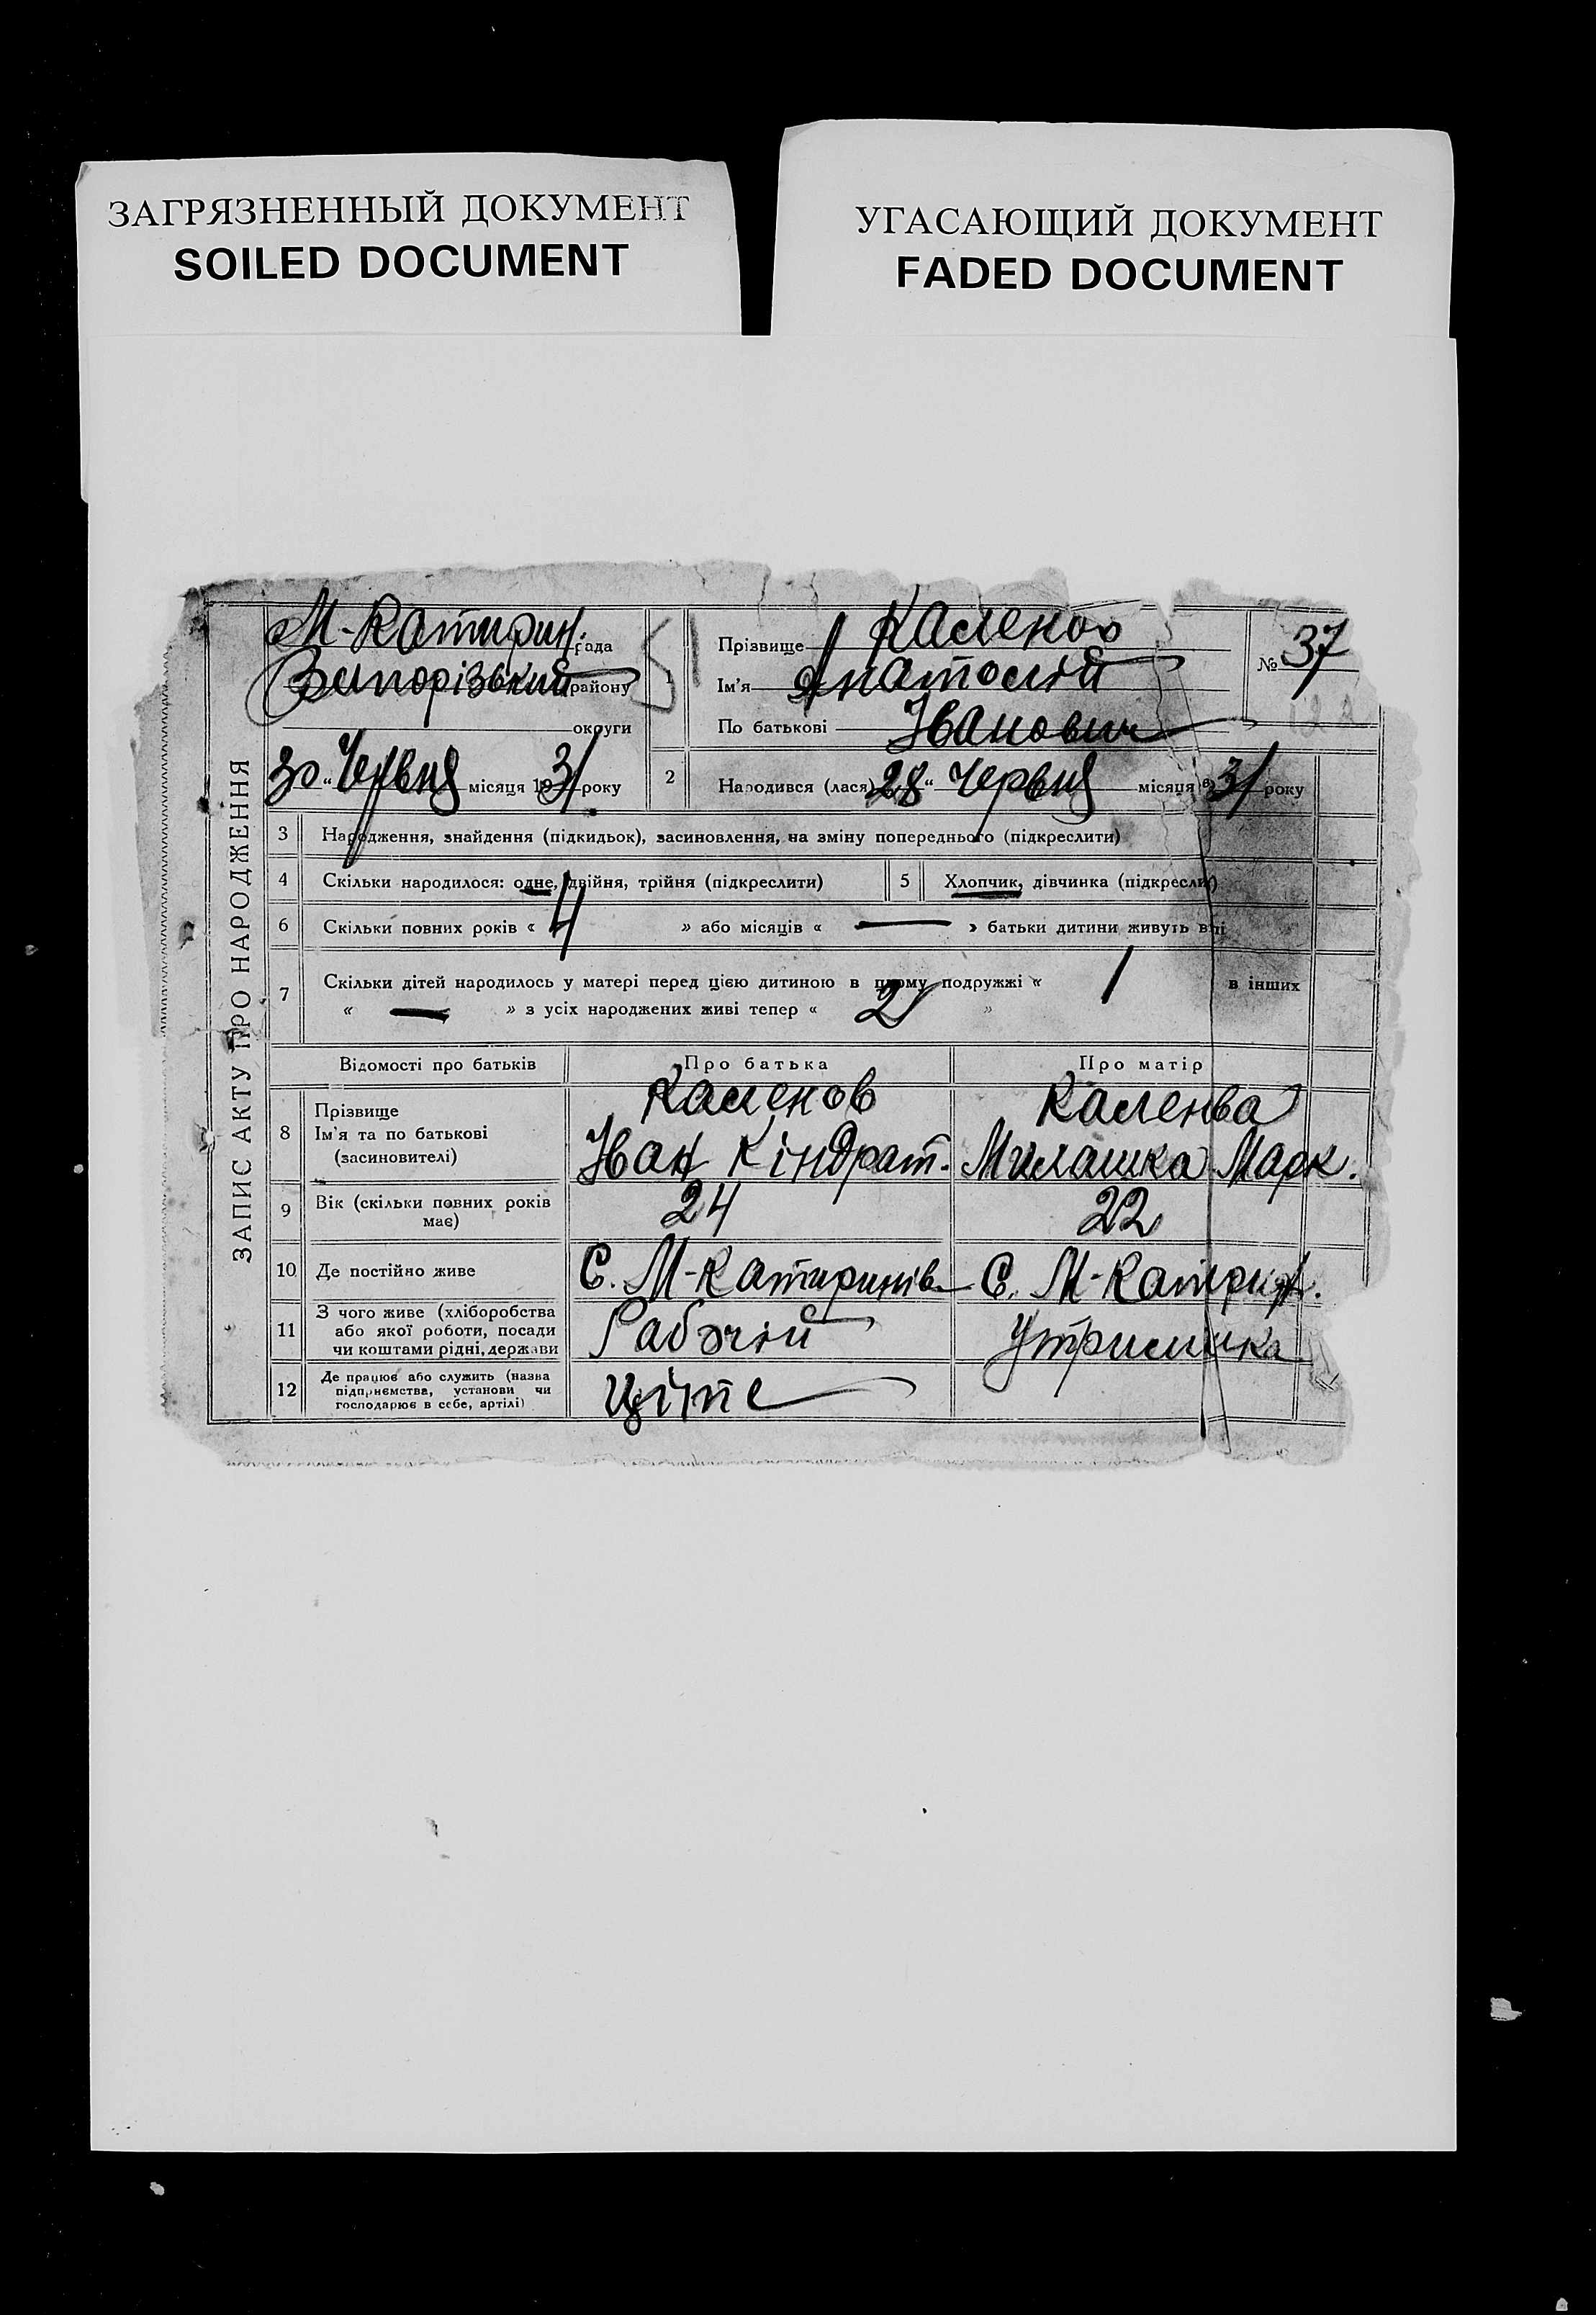 ЗАГРЯЗНЕННЫЙ ДОКУМЕНТ
SOILED DOCUMENT
УГАСАЮЩИЙ ДОКУМЕНТ
FADED DOCUMENT
ЗАПИС АКТУ ПРО НАРОДЖЕННЯ
М-Катирин. рада
Запорізький району
округи
30 " Червня місяця 1931 року
1
Прізвище Каленов
Ім'я Анатолій
По батькові Іванович
№ 37
2 Народився (лася) 28 " Червня місяця 31 року
3 Народження, знайдення (підкидьок), засиновлення, на зміну попереднього (підкреслити)
4 Скільки народилося: одне, двійня, трійня (підкреслити) 5 Хлопчик, дівчинка (підкреслит)
6 Скільки повних років « 4 » або місяців « — » батьки дитини живуть вкупі
7 Скільки дітей народилось у матері перед цією дитиною в цьому подружжі « 1 в інших
« — » з усіх народжених живі тепер « 2 »
Відомості про батьків Про батька Про матір
8 Прізвище Каленов Каленва
Ім'я та по батькові Іван Кіндрат. Милашка Марк.
(засиновителі)
9 Вік (скільки повних років має) 24 22
10 Де постійно живе С. М-Катиринів С. М-Катирин.
11 З чого живе (хліборобства Рабочий Утриманка
або якої роботи, посади
чи коштами рідні, держави
12 Де працює або служить (назва
підприємства, установи чи
господарює в себе, артілі)